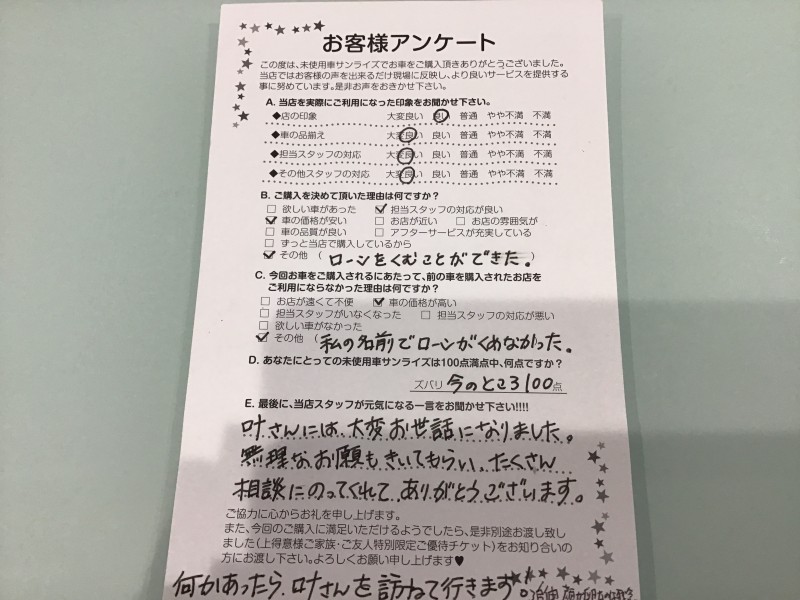 お客様アンケート
この度は、未使用車サンライズでお車をご購入頂きありがとうございました。
当店ではお客様の声を出来るだけ現場に反映し、より良いサービスを提供する
事に努めています。是非お声をおきかせ下さい。
A. 当店を実際にご利用になった印象をお聞かせ下さい。
◆店の印象 大変良い 良い 普通 やや不満 不満
◆車の品揃え 大変良い 良い 普通 やや不満 不満
◆担当スタッフの対応 大変良い 良い 普通 やや不満 不満
◆その他スタッフの対応 大変良い 良い 普通 やや不満 不満
B. ご購入を決めて頂いた理由は何ですか?
□ 欲しい車があった ☑ 担当スタッフの対応が良い
☑ 車の価格が安い □ お店が近い □ お店の雰囲気が
□ 車の品質が良い □ アフターサービスが充実している
□ ずっと当店で購入しているから
☑ その他 (ローンをくむことができた。)
C. 今回お車をご購入されるにあたって、前の車を購入されたお店を
ご利用にならなかった理由は何ですか?
□ お店が遠くて不便 ☑ 車の価格が高い
□ 担当スタッフがいなくなった □ 担当スタッフの対応が悪い
□ 欲しい車がなかった
☑ その他 (私の名前でローンがくめなかった。
D. あなたにとっての未使用車サンライズは100点満点中、何点ですか?
ズバリ 今のところ100点
E. 最後に、当店スタッフが元気になる一言をお聞かせ下さい!!!!
叶さんには、大変お世話になりました。
無理なお願もきいてもらい、たくさん
相談にのってくれて、ありがとうございます。
ご協力に心からお礼を申し上げます。
また、今回のご購入に満足いただけるようでしたら、是非別途お渡し致し
ました(上得意様ご家族・ご友人特別限定ご優待チケット)をお知り合いの
方にお渡し下さい。よろしくお願い申し上げます♥
何かあったら、叶さんを訪ねて行きます。